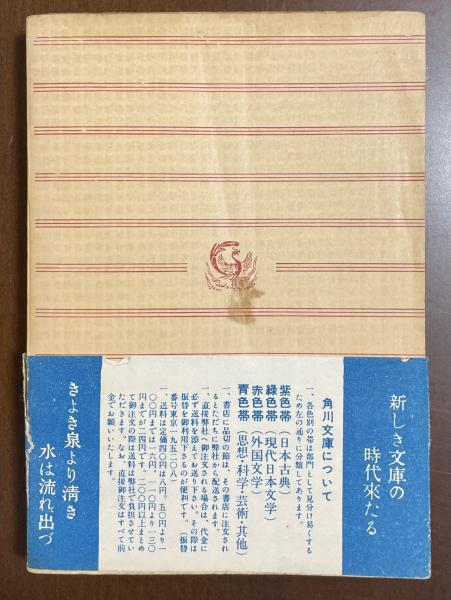 新しき文庫の
時代來たる
角川文庫について
一、各色別の帯は部門として見分け易くする
ため左の通りに分類してあります。
紫色帯（日本古典）
綠色帯（現代日本文学）
赤色帯（外国文学）
青色帯（思想・科学・芸術・其他）
一、書店に品切の節は、その書店に注文され
るとただちに弊社から配送されます。
一、直接弊社へ御注文される場合は、代金に
必ず送料を添えてお送り下さい。その際は
振替を御利用下さるのが便利です。（振替
番号東京一九五二〇八）
一、送料は定価四〇円は八円。五〇円より一
〇〇円までは一六円。一一〇円より一三〇
円までが二四円。二〇〇円以上まとめ
て御注文の際は送料は弊社で負担させてい
ただきます。なお、直接御注文はすべて前
金でお願いいたします。
きよき泉より淸き
水は流れ出づ